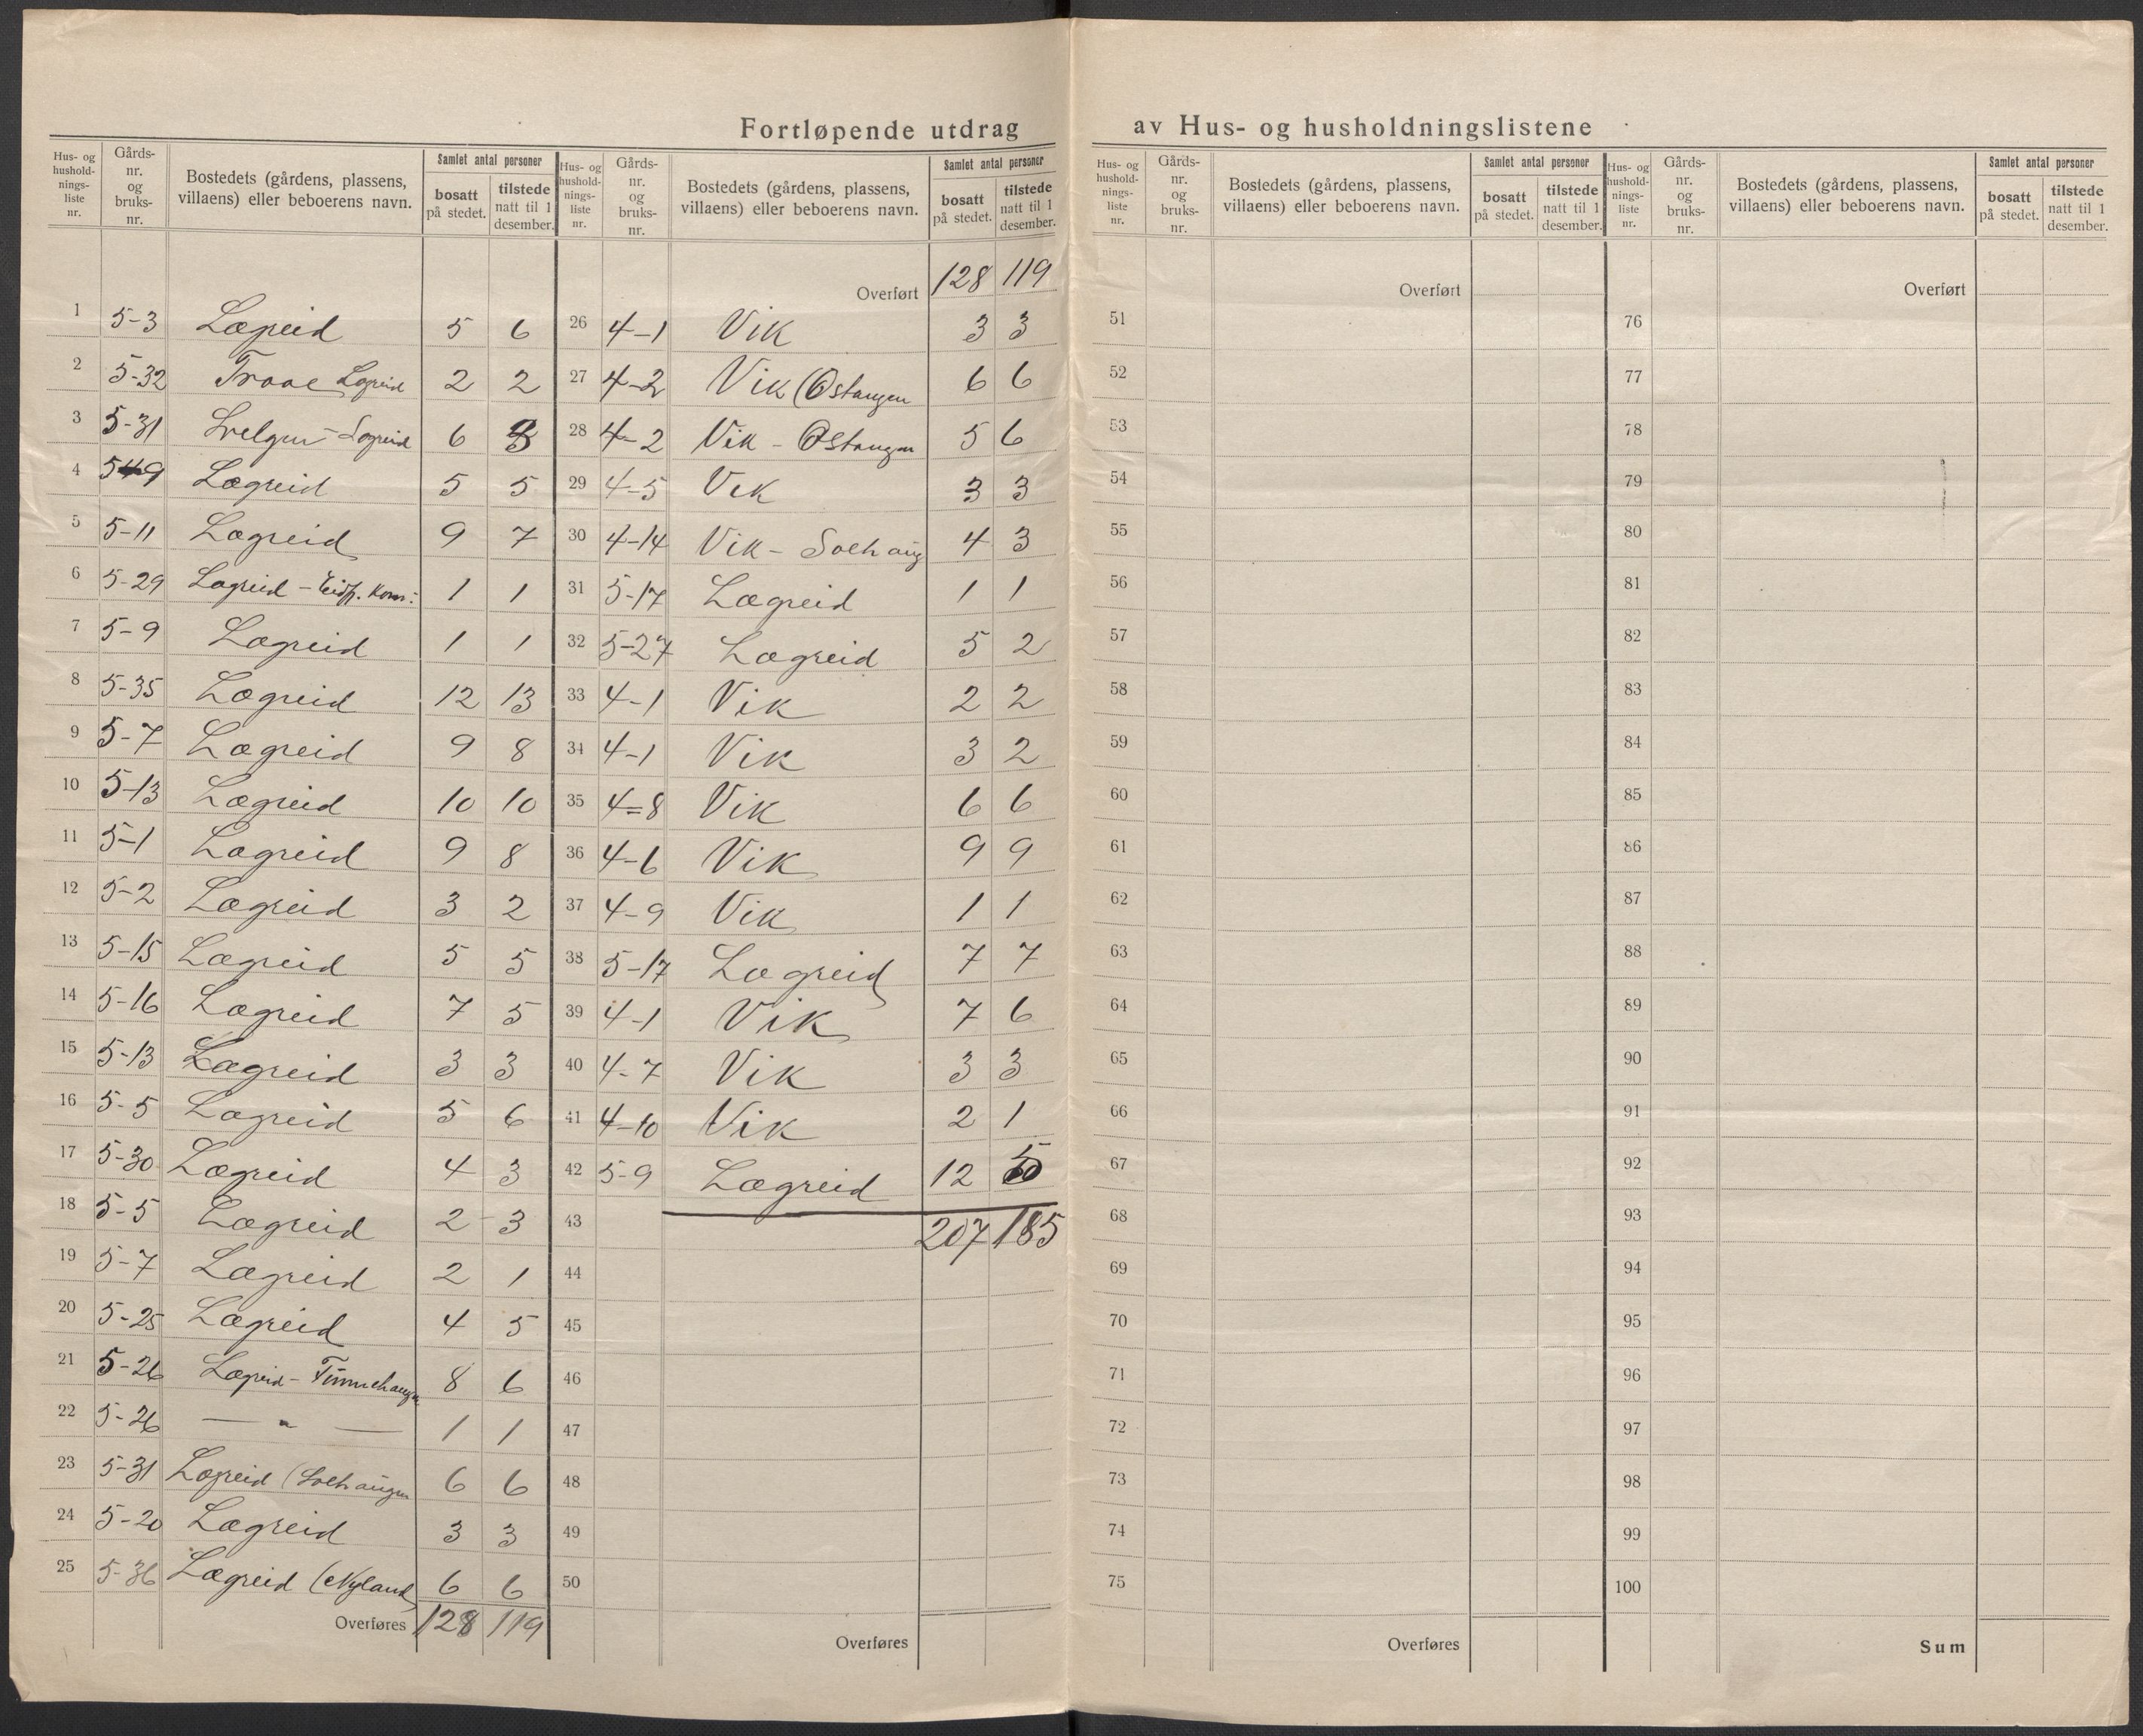 Fortløpende utdrag av Hus- og husholdningslistene
Hus- og husholdnings-liste nr. Gårds-nr. og bruks-nr. Bostedets (gårdens, plassens, villaens) eller beboerens navn. Samlet antal personer bosatt på stedet. tilstede natt til 1 desember.
1 5-3 Lægreid 5 6
2 5-32 Traae Lægreid 2 2
3 5-31 Lægreid 6
4 5 9 Lægreid 5 5
5 5-11 Lægreid 9 7
6 5-29 Lægreid - Eidfj. Kom: 1 1
7 5-9 Lægreid 1 1
8 5-35 Lægreid 12 13
9 5-7 Lægreid 9 8
10 5-13 Lægreid 10 10
11 5-1 Lægreid 9 8
12 5-2 Lægreid 3 2
13 5-15 Lægreid 5 5
14 5-16 Lægreid 7 5
15 5-13 Lægreid 3 3
16 5-5 Lægreid 5 6
17 5-30 Lægreid 4 3
18 5-5 Lægreid 2 3
19 5-7 Lægreid 2 1
20 5-25 Lægreid 4 5
21 5-26 Lægreid - 8 6
22 5-26 — " — 1 1
23 5-31 Lægreid (Solhaugen 6 6
24 5-20 Lægreid 3 3
25 5-36 Lægreid (Nyland) 6 6
Overføres 128 119
Hus- og husholdnings-liste nr. Gårds-nr. og bruks-nr. Bostedets (gårdens, plassens, villaens) eller beboerens navn. Samlet antal personer bosatt på stedet. tilstede natt til 1 desember.
Overført 128 119
26 4-1 Vik 3 3
27 4-2 Vik (Ostangen 6 6
28 4-2 Vik - Ostangen 5 6
29 4-5 Vik 3 3
30 4-14 Vik - Solhaug 4 3
31 5-17 Lægreid 1 1
32 5-27 Lægreid 5 2
33 4-1 Vik 2 2
34 4-1 Vik 3 2
35 4=8 Vik 6 6
36 4-6 Vik 9 9
37 4-9 Vik 1 1
38 5-17 Lægreid 7 7
39 4-1 Vik 7 6
40 4-7 Vik 3 3
41 4-10 Vik 2 1
42 5-9 Lægreid 12 5
43 207 185
44
45
46
47
48
49
50
Overføres
Hus- og husholdnings-liste nr. Gårds-nr. og bruks-nr. Bostedets (gårdens, plassens, villaens) eller beboerens navn. Samlet antal personer bosatt på stedet. tilstede natt til 1 desember.
Overført
51
52
53
54
55
56
57
58
59
60
61
62
63
64
65
66
67
68
69
70
71
72
73
74
75
Overføres
Hus- og husholdnings-liste nr. Gårds-nr. og bruks-nr. Bostedets (gårdens, plassens, villaens) eller beboerens navn. Samlet antal personer bosatt på stedet. tilstede natt til 1 desember.
Overført
76
77
78
79
80
81
82
83
84
85
86
87
88
89
90
91
92
93
94
95
96
97
98
99
100
Sum